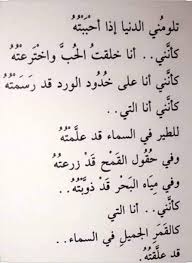 تلومُني الدنيا إذا أحْبَبْتُهُ
كأنّني.. أنا خلقتُ الحُبَّ واخْترعْتُهُ
كأنّني أنا على خُدُودِ الورد قد رَسَمْتُهُ
كأنّني أنا التي..
للطيرِ في السماء قد علّمْتُهُ
وفي حُقُولِ القَمْحِ قدْ زرعتُهُ
وفي مِيَاهِ البَحْرِ قَدْ ذوّبْتُهُ
كأنّني.. أنا التي
كالقمَرِ الجميلِ في السماء..
قد علّقْتُهُ..